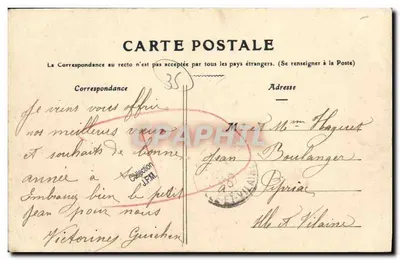 CARTE POSTALE
La Correspondance au recto n'est pas acceptée par tous les pays étrangers. (Se renseigner à la Poste)
Correspondance
Adresse
35
Je viens vous offrir
nos meilleures vœux
et souhaits de bonne
année à
Embrassez bien le petit
Jean pour nous
Victorine Guichen
M. et Mme
Jean Boulanger
à Pipriac
Ille et Vilaine
CPAPHIL
Collection
J.P.M.
ILLE-ET-VILAINE